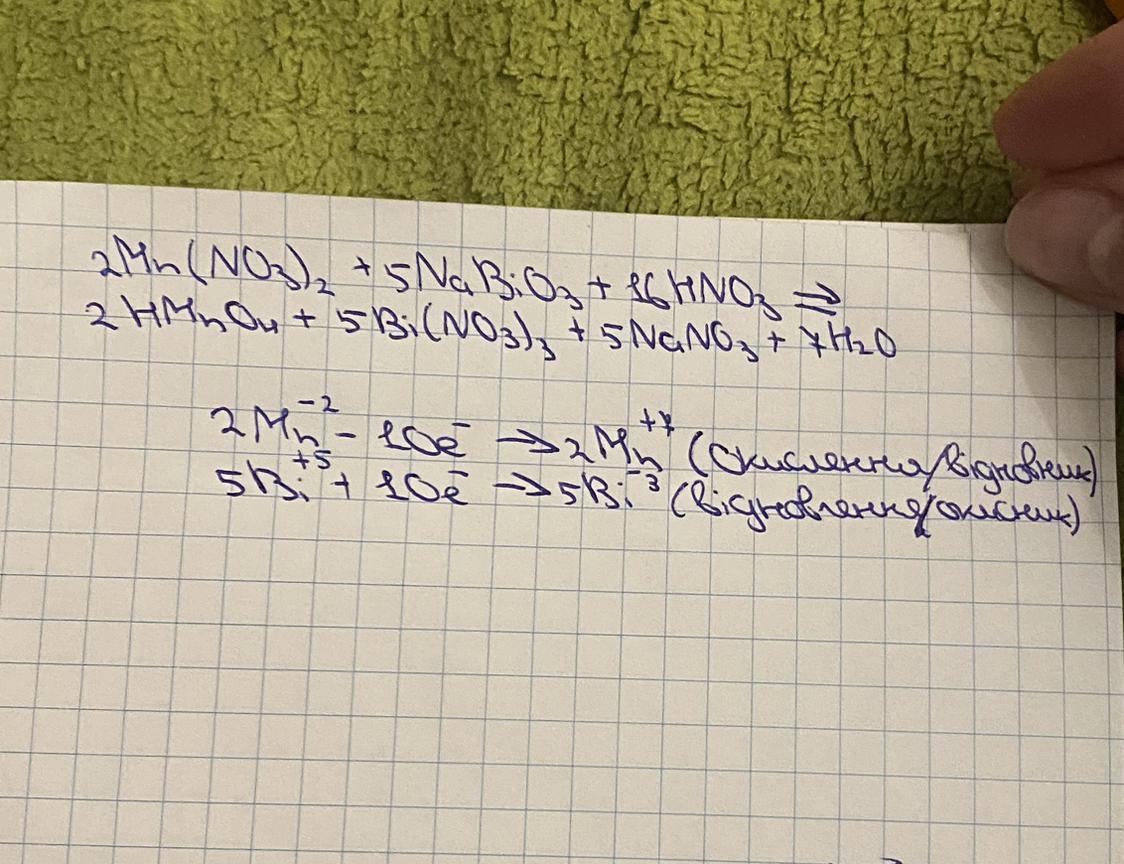 2Mn(NO₃)₂ + 5NaBiO₃ + 16HNO₃ ⇒
2HMnO₄ + 5Bi(NO₃)₃ + 5NaNO₃ + 7H₂O
2Mn⁻² - 10e⁻ → 2Mn⁺⁷ (окислення/відновник)
5Bi⁺⁵ + 10e⁻ → 5Bi⁻³ (відновлення/окисник)